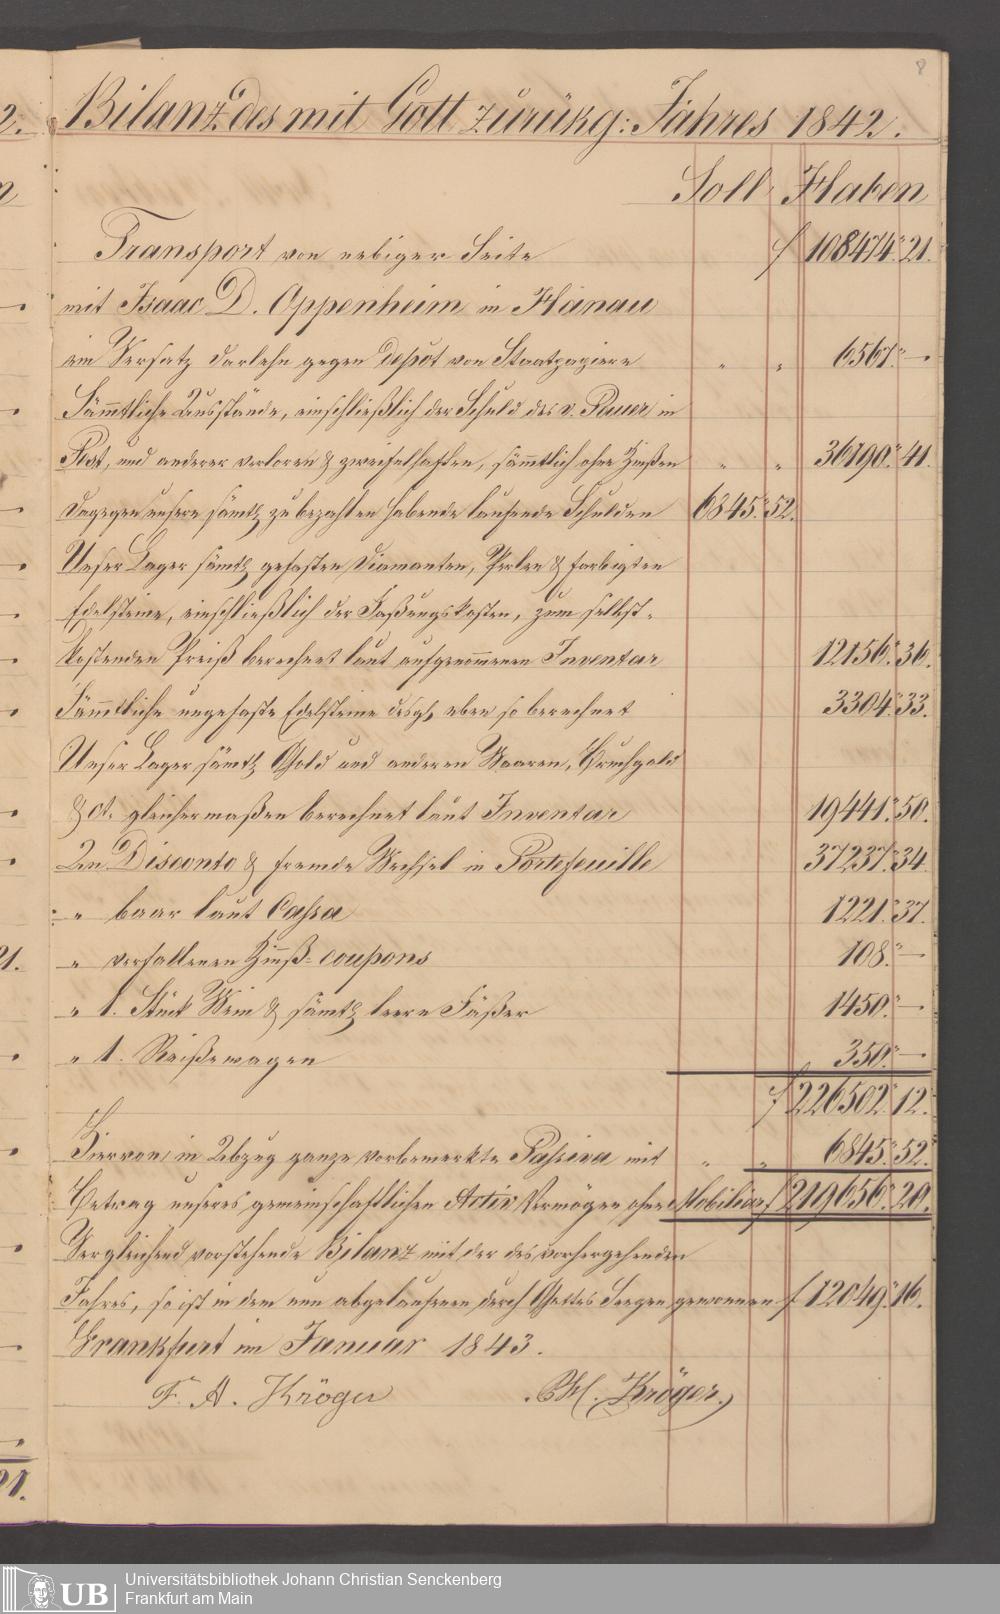 8
Bilanz des mit Gott zurükg: Jahres 1842.
Soll Haben
Transport von nebiger Seite f 108474.21.
mit Isaac D. Oppenheim in Hanau
ein Versatz Darlehn gegen Depôt von Staatpapiere " " 6567.—.
Sämtliche Ausstände, einschließlich der Schuld des v. Pauer in
Pest, und anderer verloren & zweifelhaften, sämtlich ohne Zinßen " " 36190.41.
Dagegen unsere sämtl zu bezahlen habende laufende Schulden 6845.52.
Unser Lager sämtl gefasten Diamanten, Perlen & farbigten
Edelsteine, einschließlich der Faßungskosten, zum selbst-
kostenden Preiß berechnet laut aufgenommenen Inventar 12156.36.
Sämtliche ungefaste Edelsteine desgl, eben so berechnet 3304.33.
Unser Lager sämtl Gold und anderen Waaren, Bruchgold
& ct. gleichermaßen berechnet laut Inventar 19441.50.
An Disconto & fremde Wechsel in Portefeuille 37237.34.
" baar laut Cassa 1221.37.
" verfallenen Zinß-coupons 108.—
" 1. Stück Wein & sämtl leere Fäßer 1450.—.
" 1. Reißewagen 350.—
f 226502.12.
Hiervon, in Abzug ganze vorbemerkte Passiva mit " " 6845.52.
Betrag unseres gemeinschaftlichen Activ Vermögen ohne Mobiliar f 219656.20.
Vergleichend vorstehende Bilanz mit der des vorhergehenden
Jahres, so ist in dem nun abgelaufenen, durch Gottes Seegen gewonnen f 12049.16.
Frankfurt im Januar 1843.
F. A. Kröger Kröger.
2.
21.
21.
UB Universitätsbibliothek Johann Christian Senckenberg
Frankfurt am Main